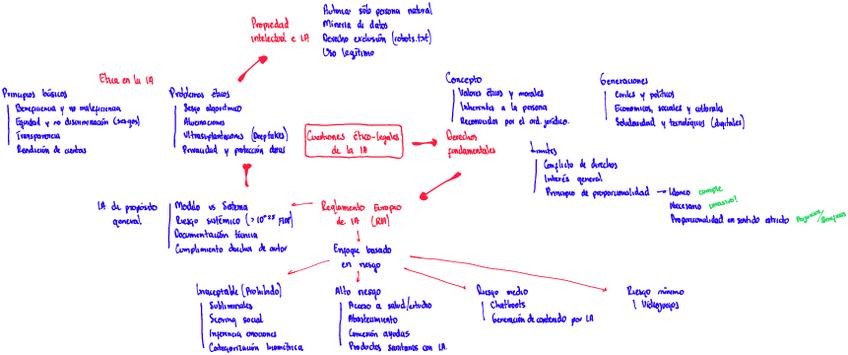 Propiedad
intelectual e IA
Autores sólo persona natural
Minería de datos
Derecho exclusión (robots.txt)
Uso legítimo
Ética en la IA
Principios básicos
Beneficencia y no maleficencia
Equidad y no discriminación (sesgos)
Transparencia
Rendición de cuentas
Problemas éticos
Sesgo algorítmico
Alucinaciones
Ultrasuplantaciones (Deepfakes)
Privacidad y protección datos
Cuestiones ético-legales
de la IA
Derechos
fundamentales
Concepto
Valores éticos y morales
Inherentes a la persona
Reconocidos por el ord. jurídico.
Generaciones
Civiles y políticos
Económicos, sociales y culturales
Solidaridad y tecnológicos (digitales)
Límites
Conflicto de derechos
Interés general
Principio de proporcionalidad → Idóneo cumple
Necesario
Proporcionalidad en sentido estricto
IA de propósito
general
Modelo vs Sistema
Riesgo sistémico (>10^25 FLOP)
Documentación técnica
Cumplimiento derechos de autor
Reglamento Europeo
de IA (RIA)
Enfoque basado
en riesgo
Inaceptable (Prohibido)
Subliminales
Scoring social
Inferencia emociones
Categorización biométrica
Alto riesgo
Acceso a salud/estudio
Abastecimiento
Concesión ayudas
Productos sanitarios con IA.
Riesgo medio
Chatbots
Generación de contenido por IA
Riesgo mínimo
Videojuegos